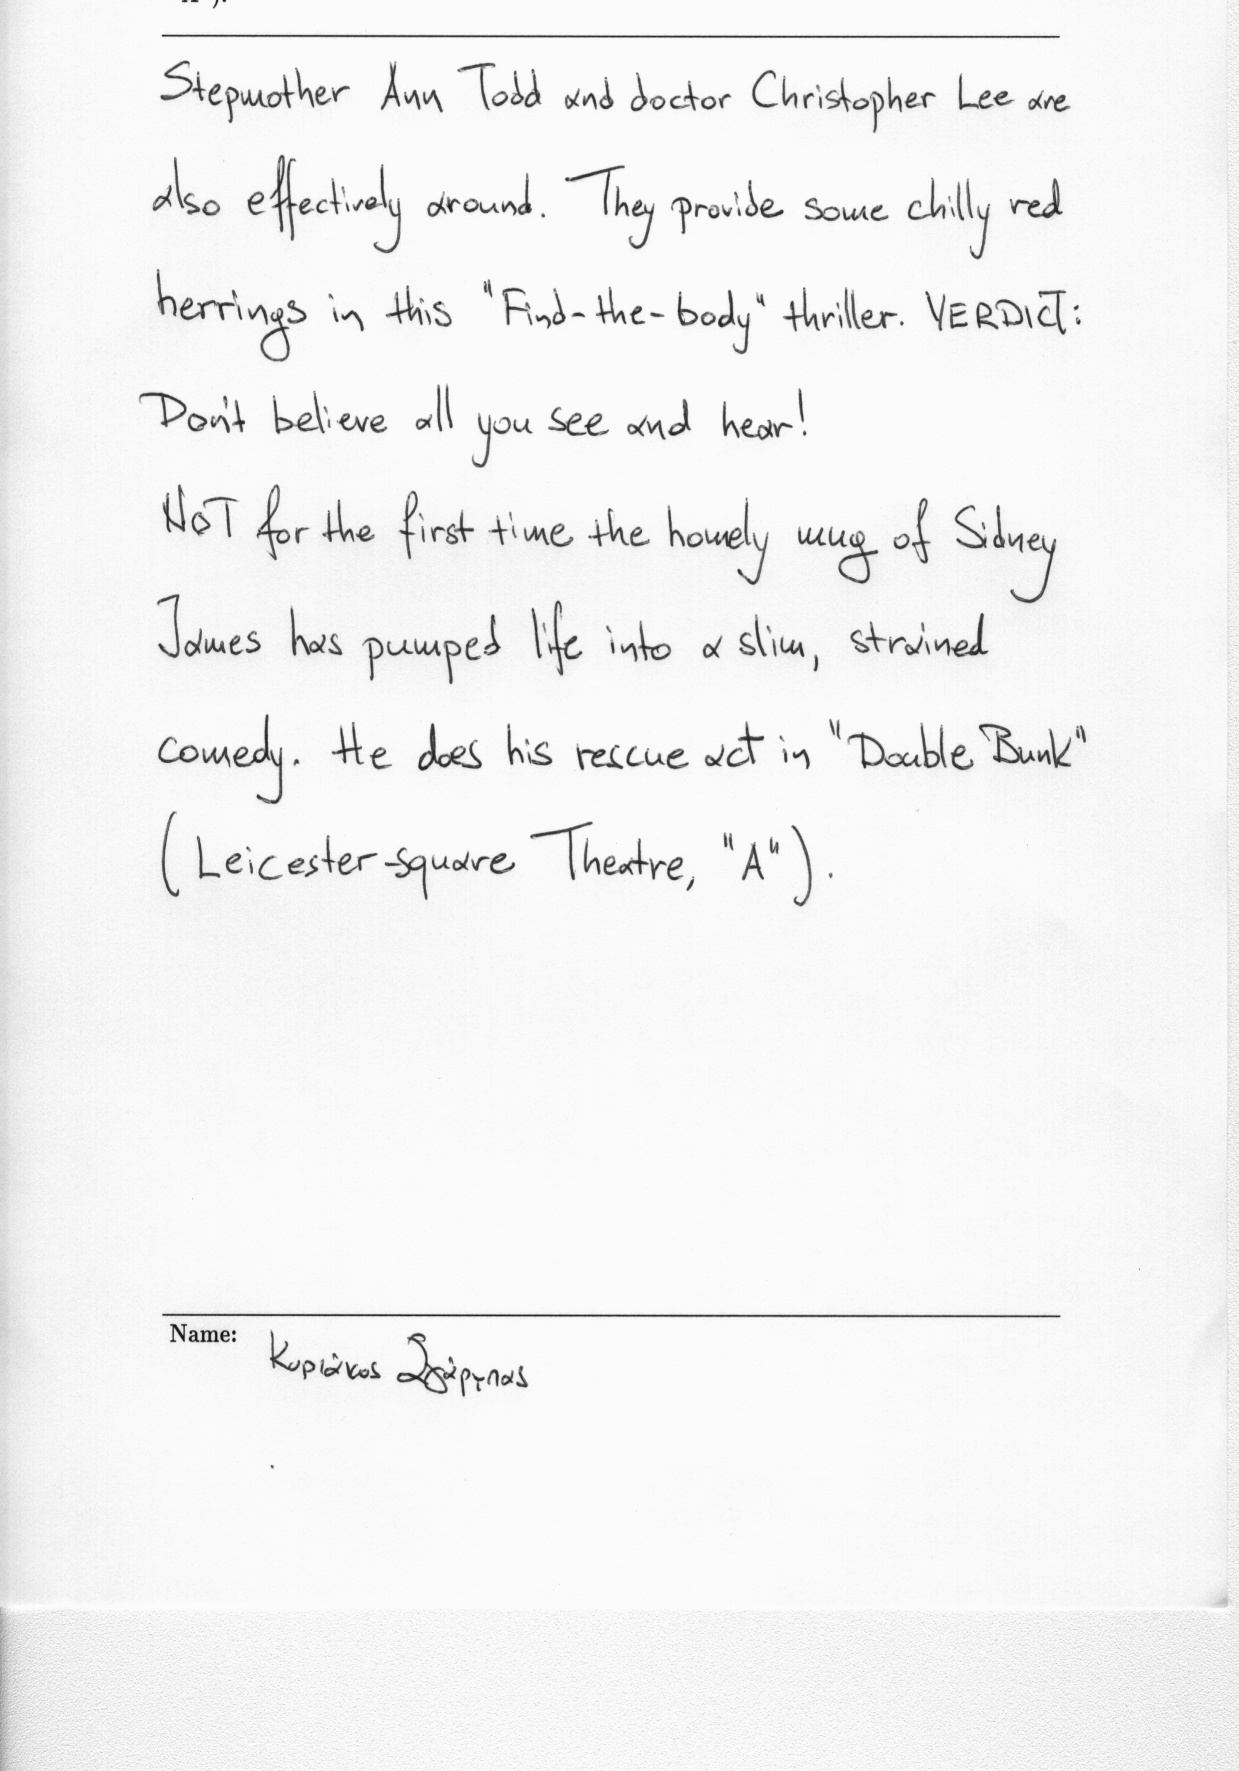 Stepmother Ann Todd and doctor Christopher Lee are
also effectively around. They provide some chilly red
herrings in this "Find-the-body" thriller. VERDICT:
Don't believe all you see and hear!
NOT for the first time the homely mug of Sidney
James has pumped life into a slim, strained
comedy. He does his rescue act in "Double Bunk"
(Leicester-square Theatre, "A").
Name: Κυριάκος